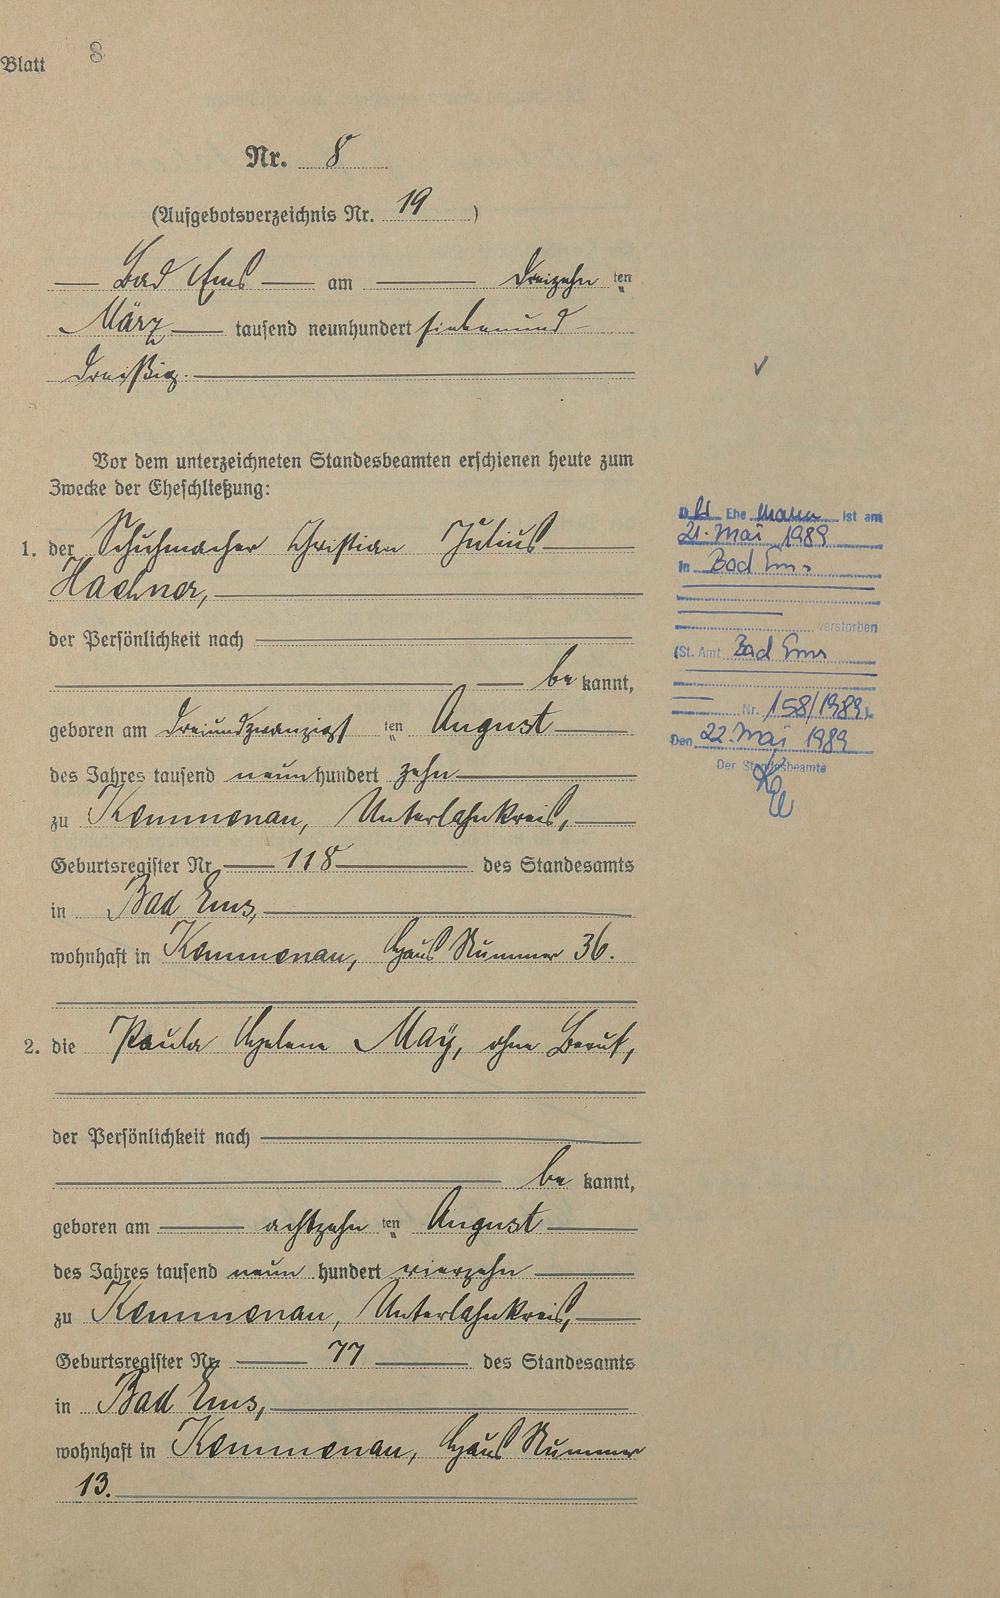 Blatt 8
Nr. 8
(Aufgebotsverzeichnis Nr. 19)
Bad Ems am dreizehn ten
März tausend neunhundert siebenund-
dreißig.
Vor dem unterzeichneten Standesbeamten erschienen heute zum
Zwecke der Eheschließung:
1. der Schuhmacher Christian Julius
Hachner,
der Persönlichkeit nach
be kannt,
geboren am dreiundzwanzigst ten August
des Jahres tausend neun hundert zehn
zu Kemmenau, Unterlahnkreis,
Geburtsregister Nr. 118 des Standesamts
in Bad Ems,
wohnhaft in Kemmenau, Haus Nummer 36.
2. die Paula Helene May, ohne Beruf,
der Persönlichkeit nach
be kannt,
geboren am achtzehn ten August
des Jahres tausend neun hundert vierzehn
zu Kemmenau, Unterlahnkreis,
Geburtsregister Nr. 77 des Standesamts
in Bad Ems,
wohnhaft in Kemmenau, Haus Nummer
13.
Der Ehe mann ist am
21. Mai 1989
in Bad Ems
verstorben
(St. Amt Bad Ems
Nr. 158/1989)
Den 22. Mai 1989
Der Standesbeamte